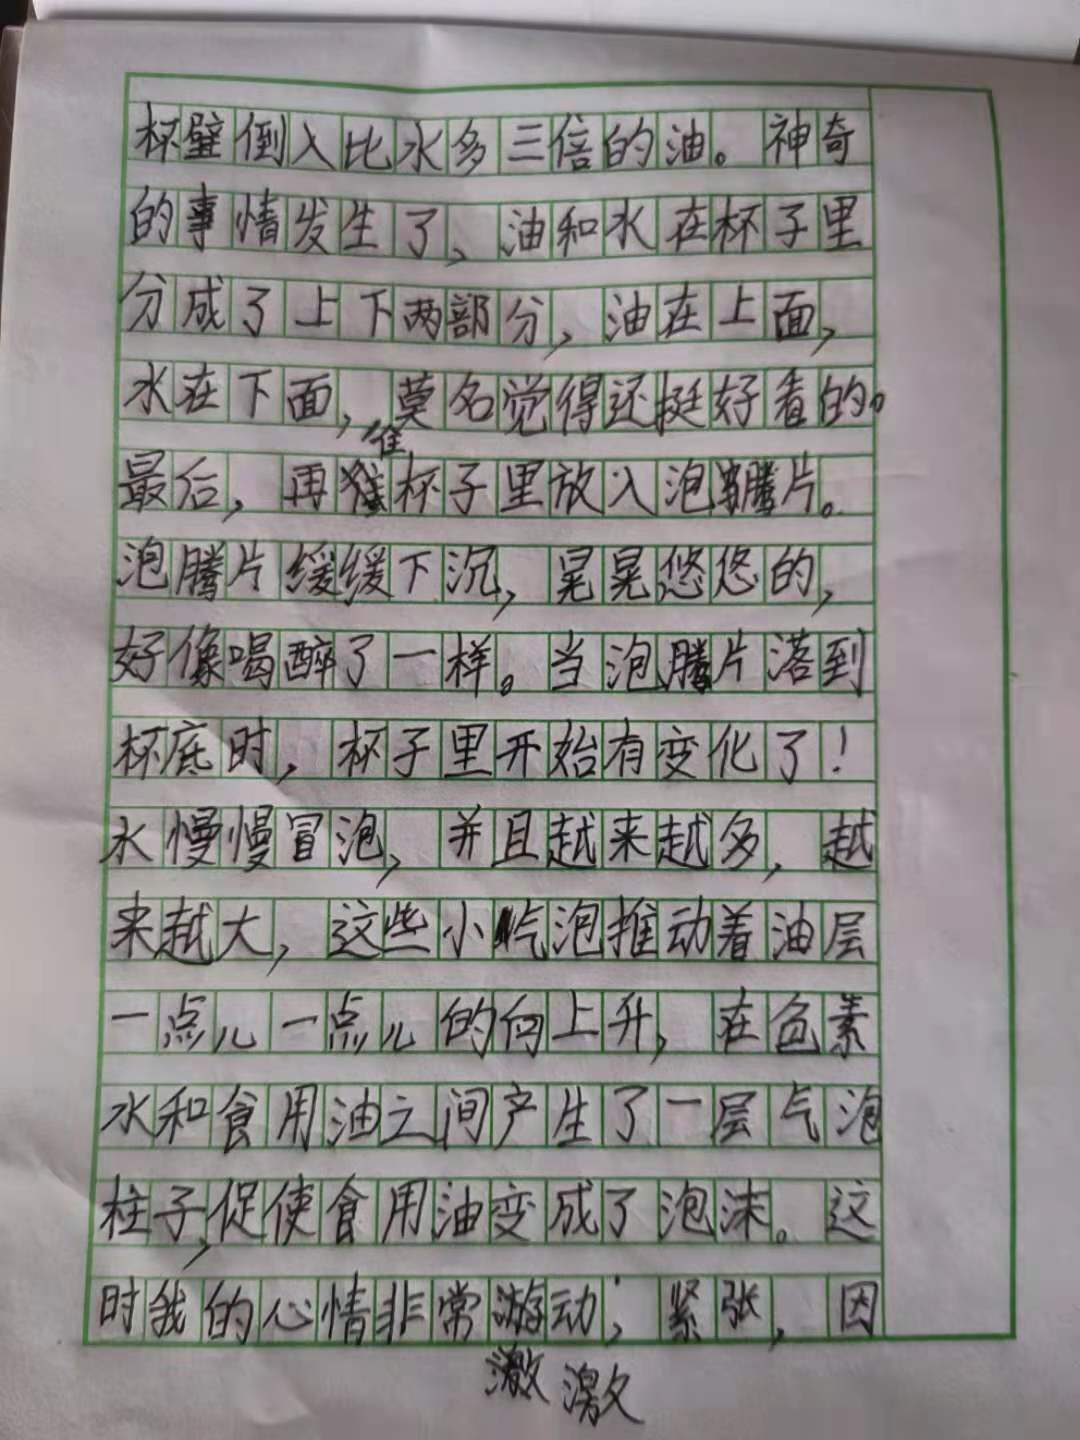 杯壁倒入比水多三倍的油。神奇
的事情发生了、油和水在杯子里
分成了上下两部分，油在上面，
水在下面，莫名觉得还挺好看的。
往
最后，再杯子里放入泡腾片。
泡腾片缓缓下沉，晃晃悠悠的，
好像喝醉了一样。当泡腾片落到
杯底时，杯子里开始有变化了！
水慢慢冒泡，并且越来越多，越
来越大，这些小气泡推动着油层
一点儿一点儿的向上升，在色素
水和食用油之间产生了一层气泡
柱子，促使食用油变成了泡沫。这
时我的心情非常动；紧张，因
激